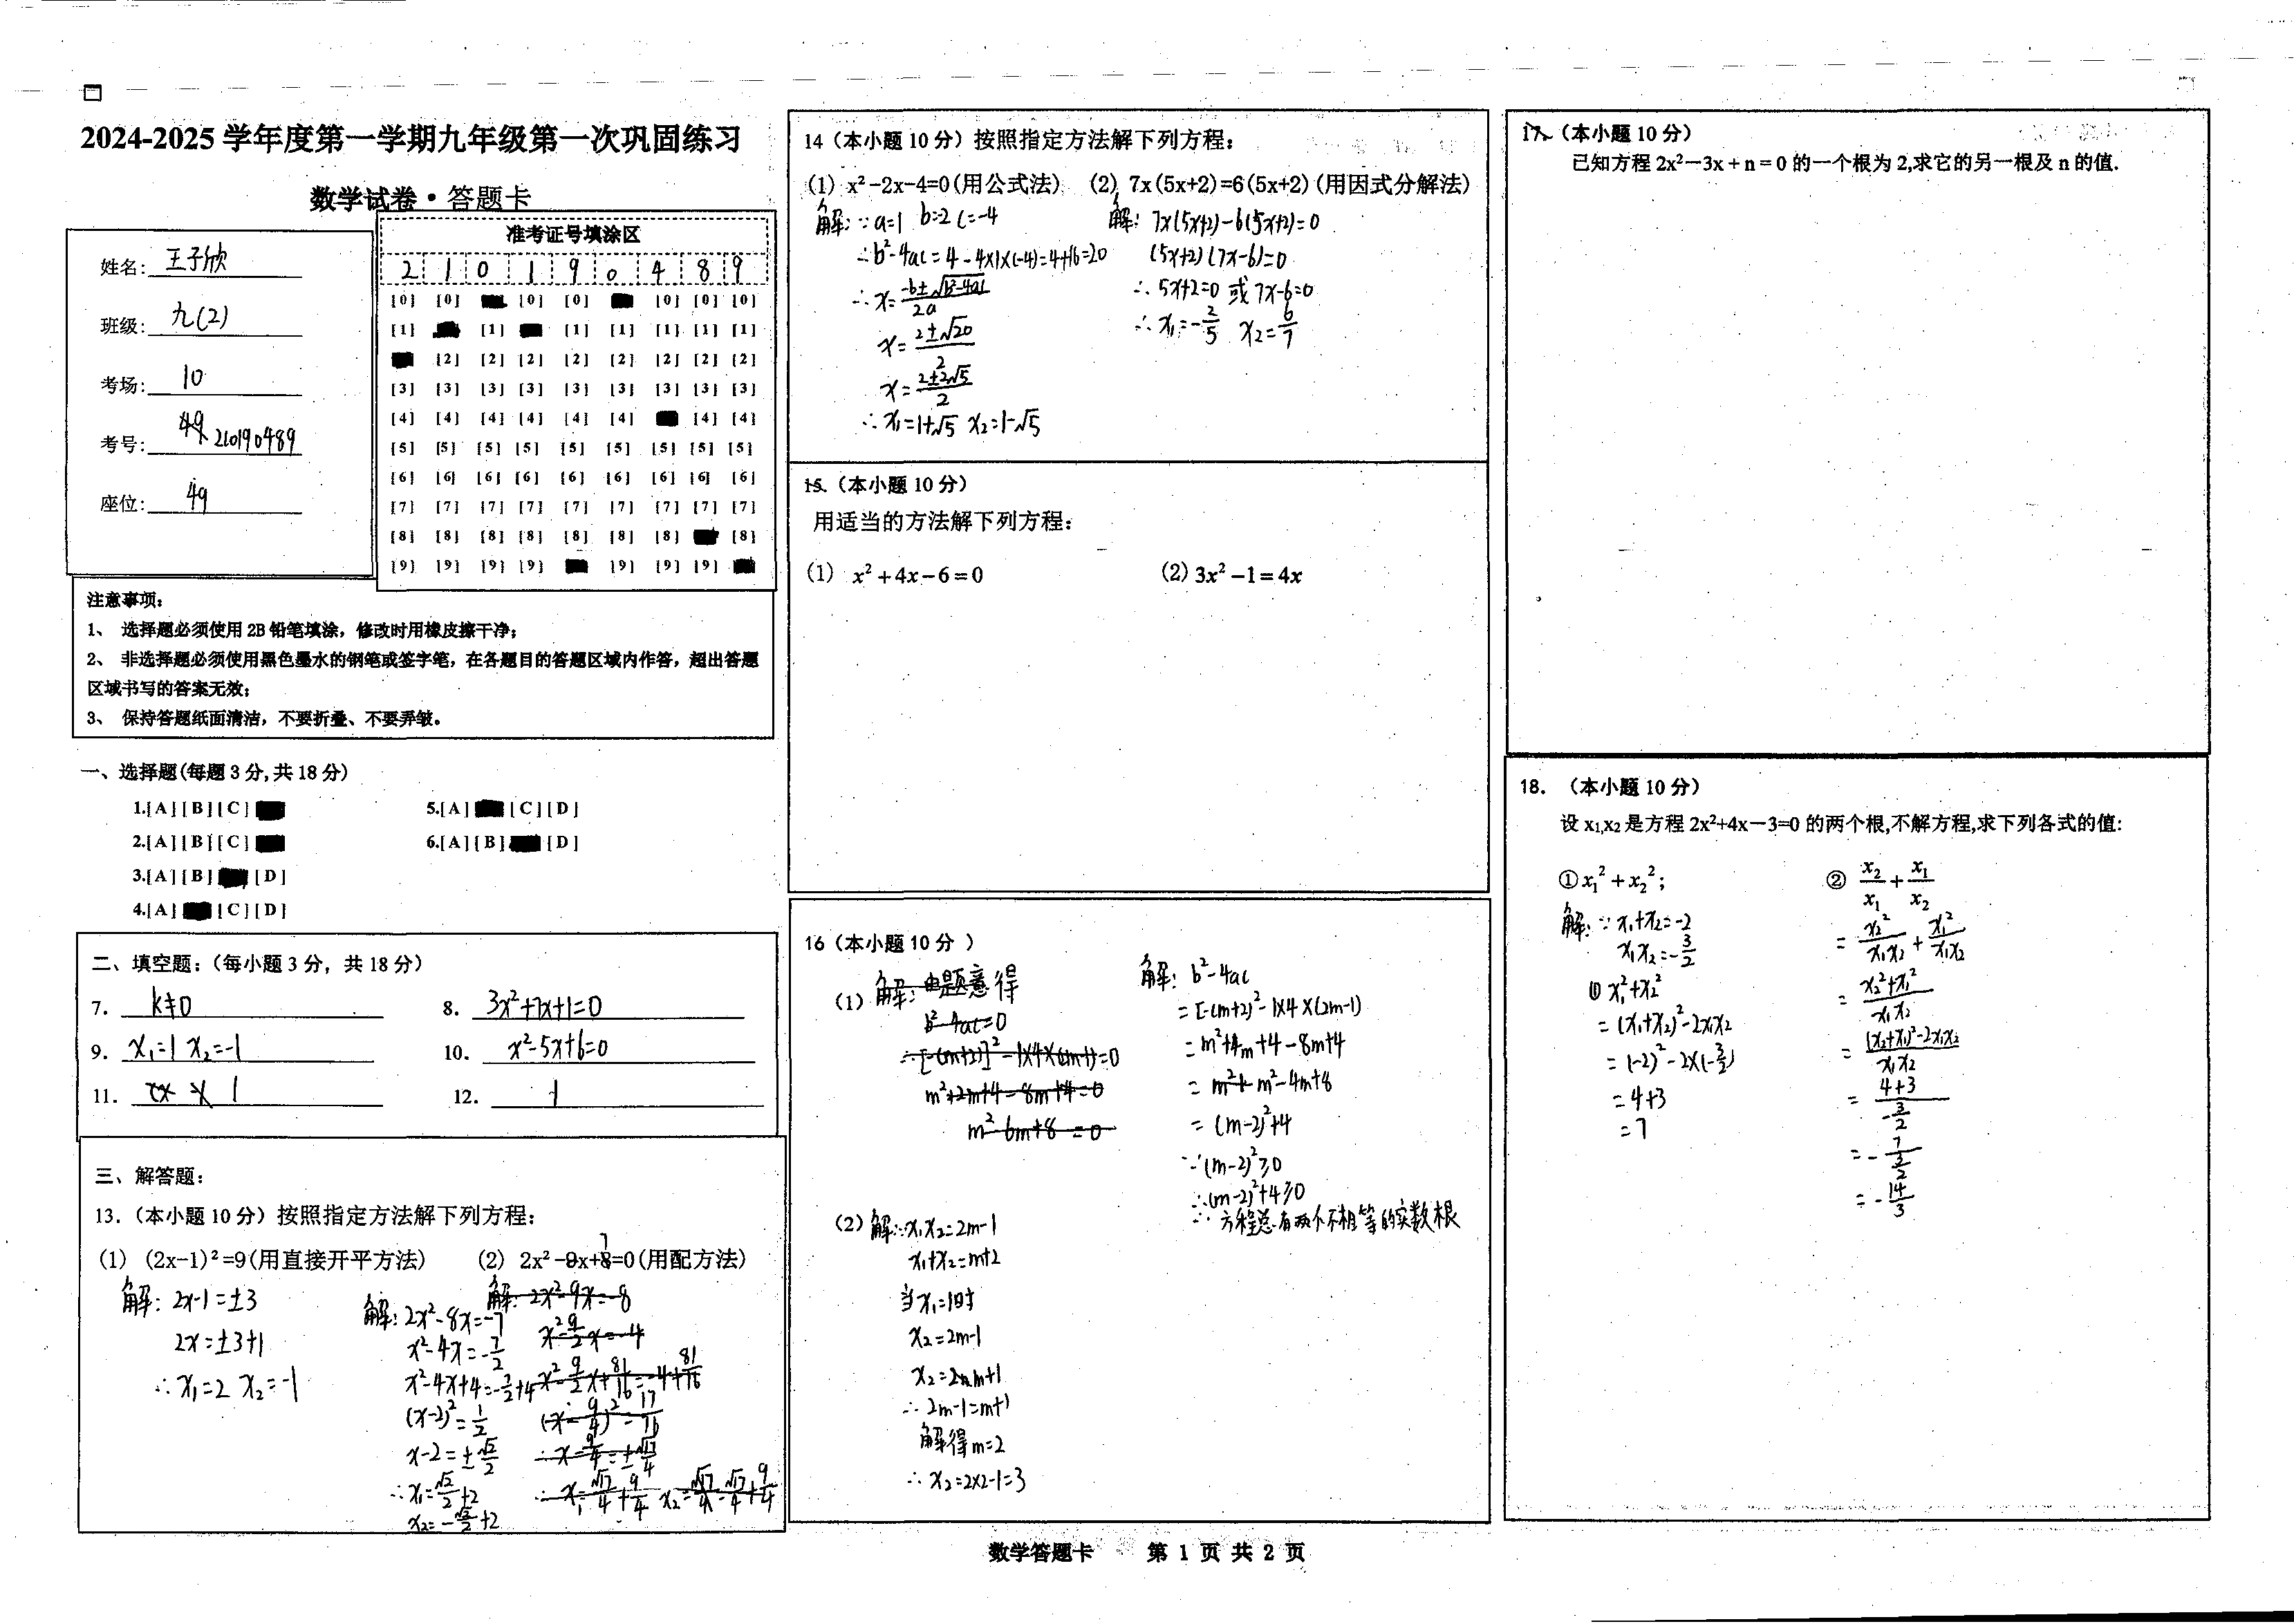 2024-2025 学年度第一学期九年级第一次巩固练习
数学试卷·答题卡
姓名: 王子欣
班级: 九(2)
考场: 10
考号: 210190489
座位: 49
准考证号填涂区
2 1 0 1 9 0 4 8 9
[0] [0] [0] [0] [0] [0] [0]
[1] [1] [1] [1] [1] [1] [1]
[2] [2] [2] [2] [2] [2] [2] [2]
[3] [3] [3] [3] [3] [3] [3] [3] [3]
[4] [4] [4] [4] [4] [4] [4] [4]
[5] [5] [5] [5] [5] [5] [5] [5] [5]
[6] [6] [6] [6] [6] [6] [6] [6] [6]
[7] [7] [7] [7] [7] [7] [7] [7] [7]
[8] [8] [8] [8] [8] [8] [8] [8]
[9] [9] [9] [9] [9] [9] [9]
注意事项:
1、 选择题必须使用 2B 铅笔填涂，修改时用橡皮擦干净;
2、 非选择题必须使用黑色墨水的钢笔或签字笔，在各题目的答题区域内作答，超出答题
区域书写的答案无效;
3、 保持答题纸面清洁，不要折叠、不要弄皱。
一、选择题(每题 3 分,共 18 分)
1.[A][B][C]
2.[A][B][C]
3.[A][B] [D]
4.[A] [C][D]
5.[A] [C][D]
6.[A][B] [D]
二、填空题:（每小题 3 分，共 18 分）
7. k≠0
8. 3x²+7x+1=0
9. x₁=1 x₂=-1
10. x²-5x+6=0
11. 1
12.
三、解答题:
13.（本小题 10 分）按照指定方法解下列方程:
(1) (2x-1)²=9(用直接开平方法)
解: 2x-1=±3
2x=±3+1
∴x₁=2 x₂=-1
(2) 2x²-8x+7=0(用配方法)
解: 2x²-9x=-8
x²-9/2x=-4
x²-9/2x+81/16=-4+81/16
(x-9/4)²=17/16
∴x-9/4=±√17/4
解: 2x²-8x=-7
x²-4x=-7/2
x²-4x+4=-7/2+4
(x-2)²=1/2
x-2=±√2/2
∴x₁=√2/2+2
x₂=-√2/2+2
14（本小题 10 分）按照指定方法解下列方程:
(1) x²-2x-4=0(用公式法)
解: ∵a=1 b=2 c=-4
∴b²-4ac=4-4×1×(-4)=4+16=20
∴x=-b±√b²-4ac/2a
x=2±√20/2
x=2±2√5/2
∴x₁=1+√5 x₂=1-√5
(2) 7x(5x+2)=6(5x+2)(用因式分解法)
解: 7x(5x+2)-6(5x+2)=0
(5x+2)(7x-6)=0
∴5x+2=0 或 7x-6=0
∴x₁=-2/5 x₂=6/7
15.（本小题 10 分）
用适当的方法解下列方程:
(1) x²+4x-6=0
(2) 3x²-1=4x
16（本小题 10 分 ）
(1) 解: 由题意得
b²-4ac=0
=[-(m+2)]²-1×4×(2m-1)=0
m²+2m+4-8m+4=0
m²-6m+8=0
解: b²-4ac
=[-(m+2)²-1×4×(2m-1)
=m²+4m+4-8m+4
=m²+ m²-4m+8
=(m-2)²+4
∵(m-2)²≥0
∴(m-2)²+4≥0
∴方程总有两个不相等的实数根
(2) 解:∵x₁x₂=2m-1
x₁+x₂=m+2
当x₁=1时
x₂=2m-1
x₂=m+1
∴2m-1=m+1
解得m=2
∴x₂=2×2-1=3
17.（本小题 10 分）
已知方程 2x²-3x+n=0 的一个根为 2,求它的另一根及 n 的值.
18. （本小题 10 分）
设 x₁,x₂ 是方程 2x²+4x-3=0 的两个根,不解方程,求下列各式的值:
①x₁²+x₂²;
解: ∵x₁+x₂=-2
x₁x₂=-3/2
① x₁²+x₂²
=(x₁+x₂)²-2x₁x₂
=(-2)²-2×(-3/2)
=4+3
=7
② x₂/x₁+x₁/x₂
=x₂²/x₁x₂+x₁²/x₁x₂
=x₂²+x₁²/x₁x₂
=(x₂+x₁)²-2x₁x₂/x₁x₂
=4+3/-3/2
=-7/3/2
=-14/3
数学答题卡 第 1 页 共 2 页